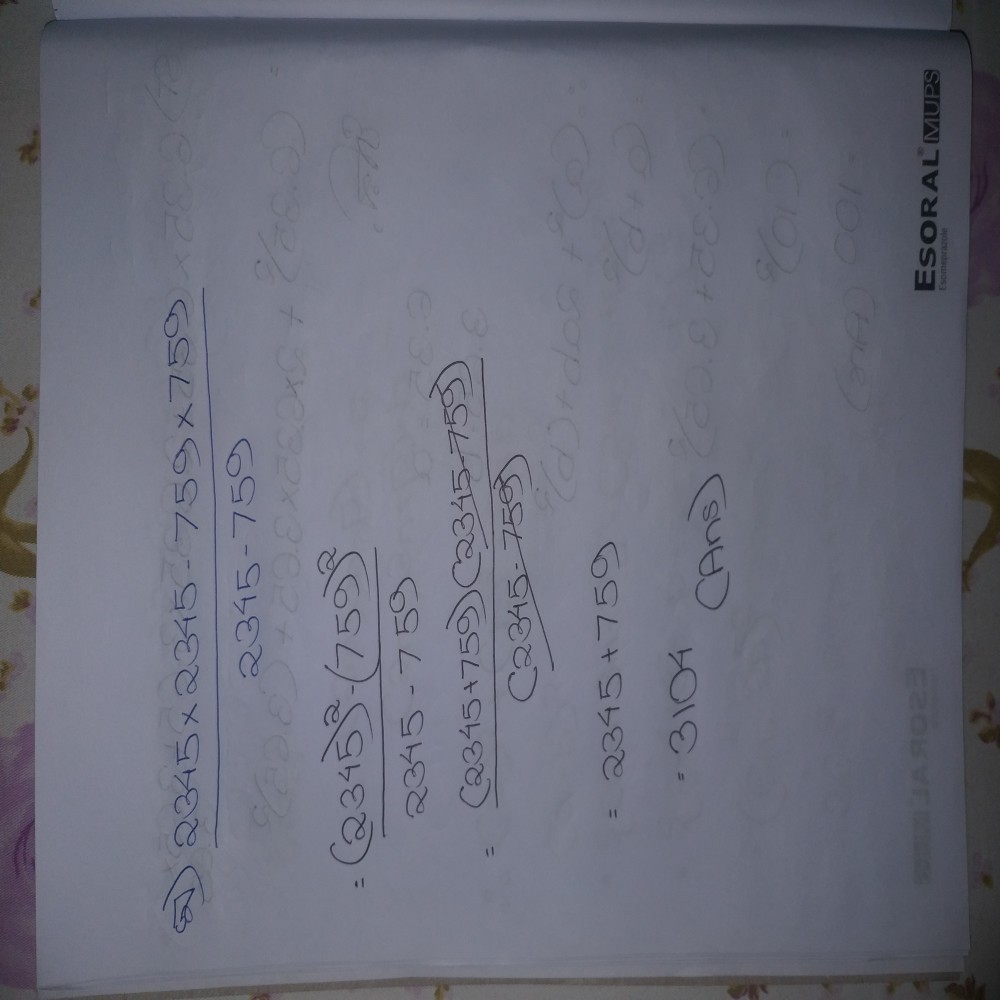 2345×2345-759×759
2345-759
= (2345)²-(759)²
2345-759
= (2345+759)(2345-759)
(2345-759)
= 2345+759
= 3104 (Ans)
ESORAL® MUPS
Esomeprazole